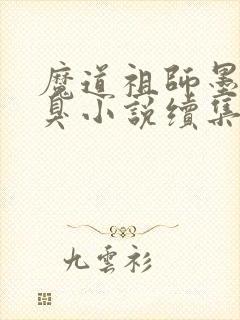 魔道祖師墨
臭小說續集
九雲衫